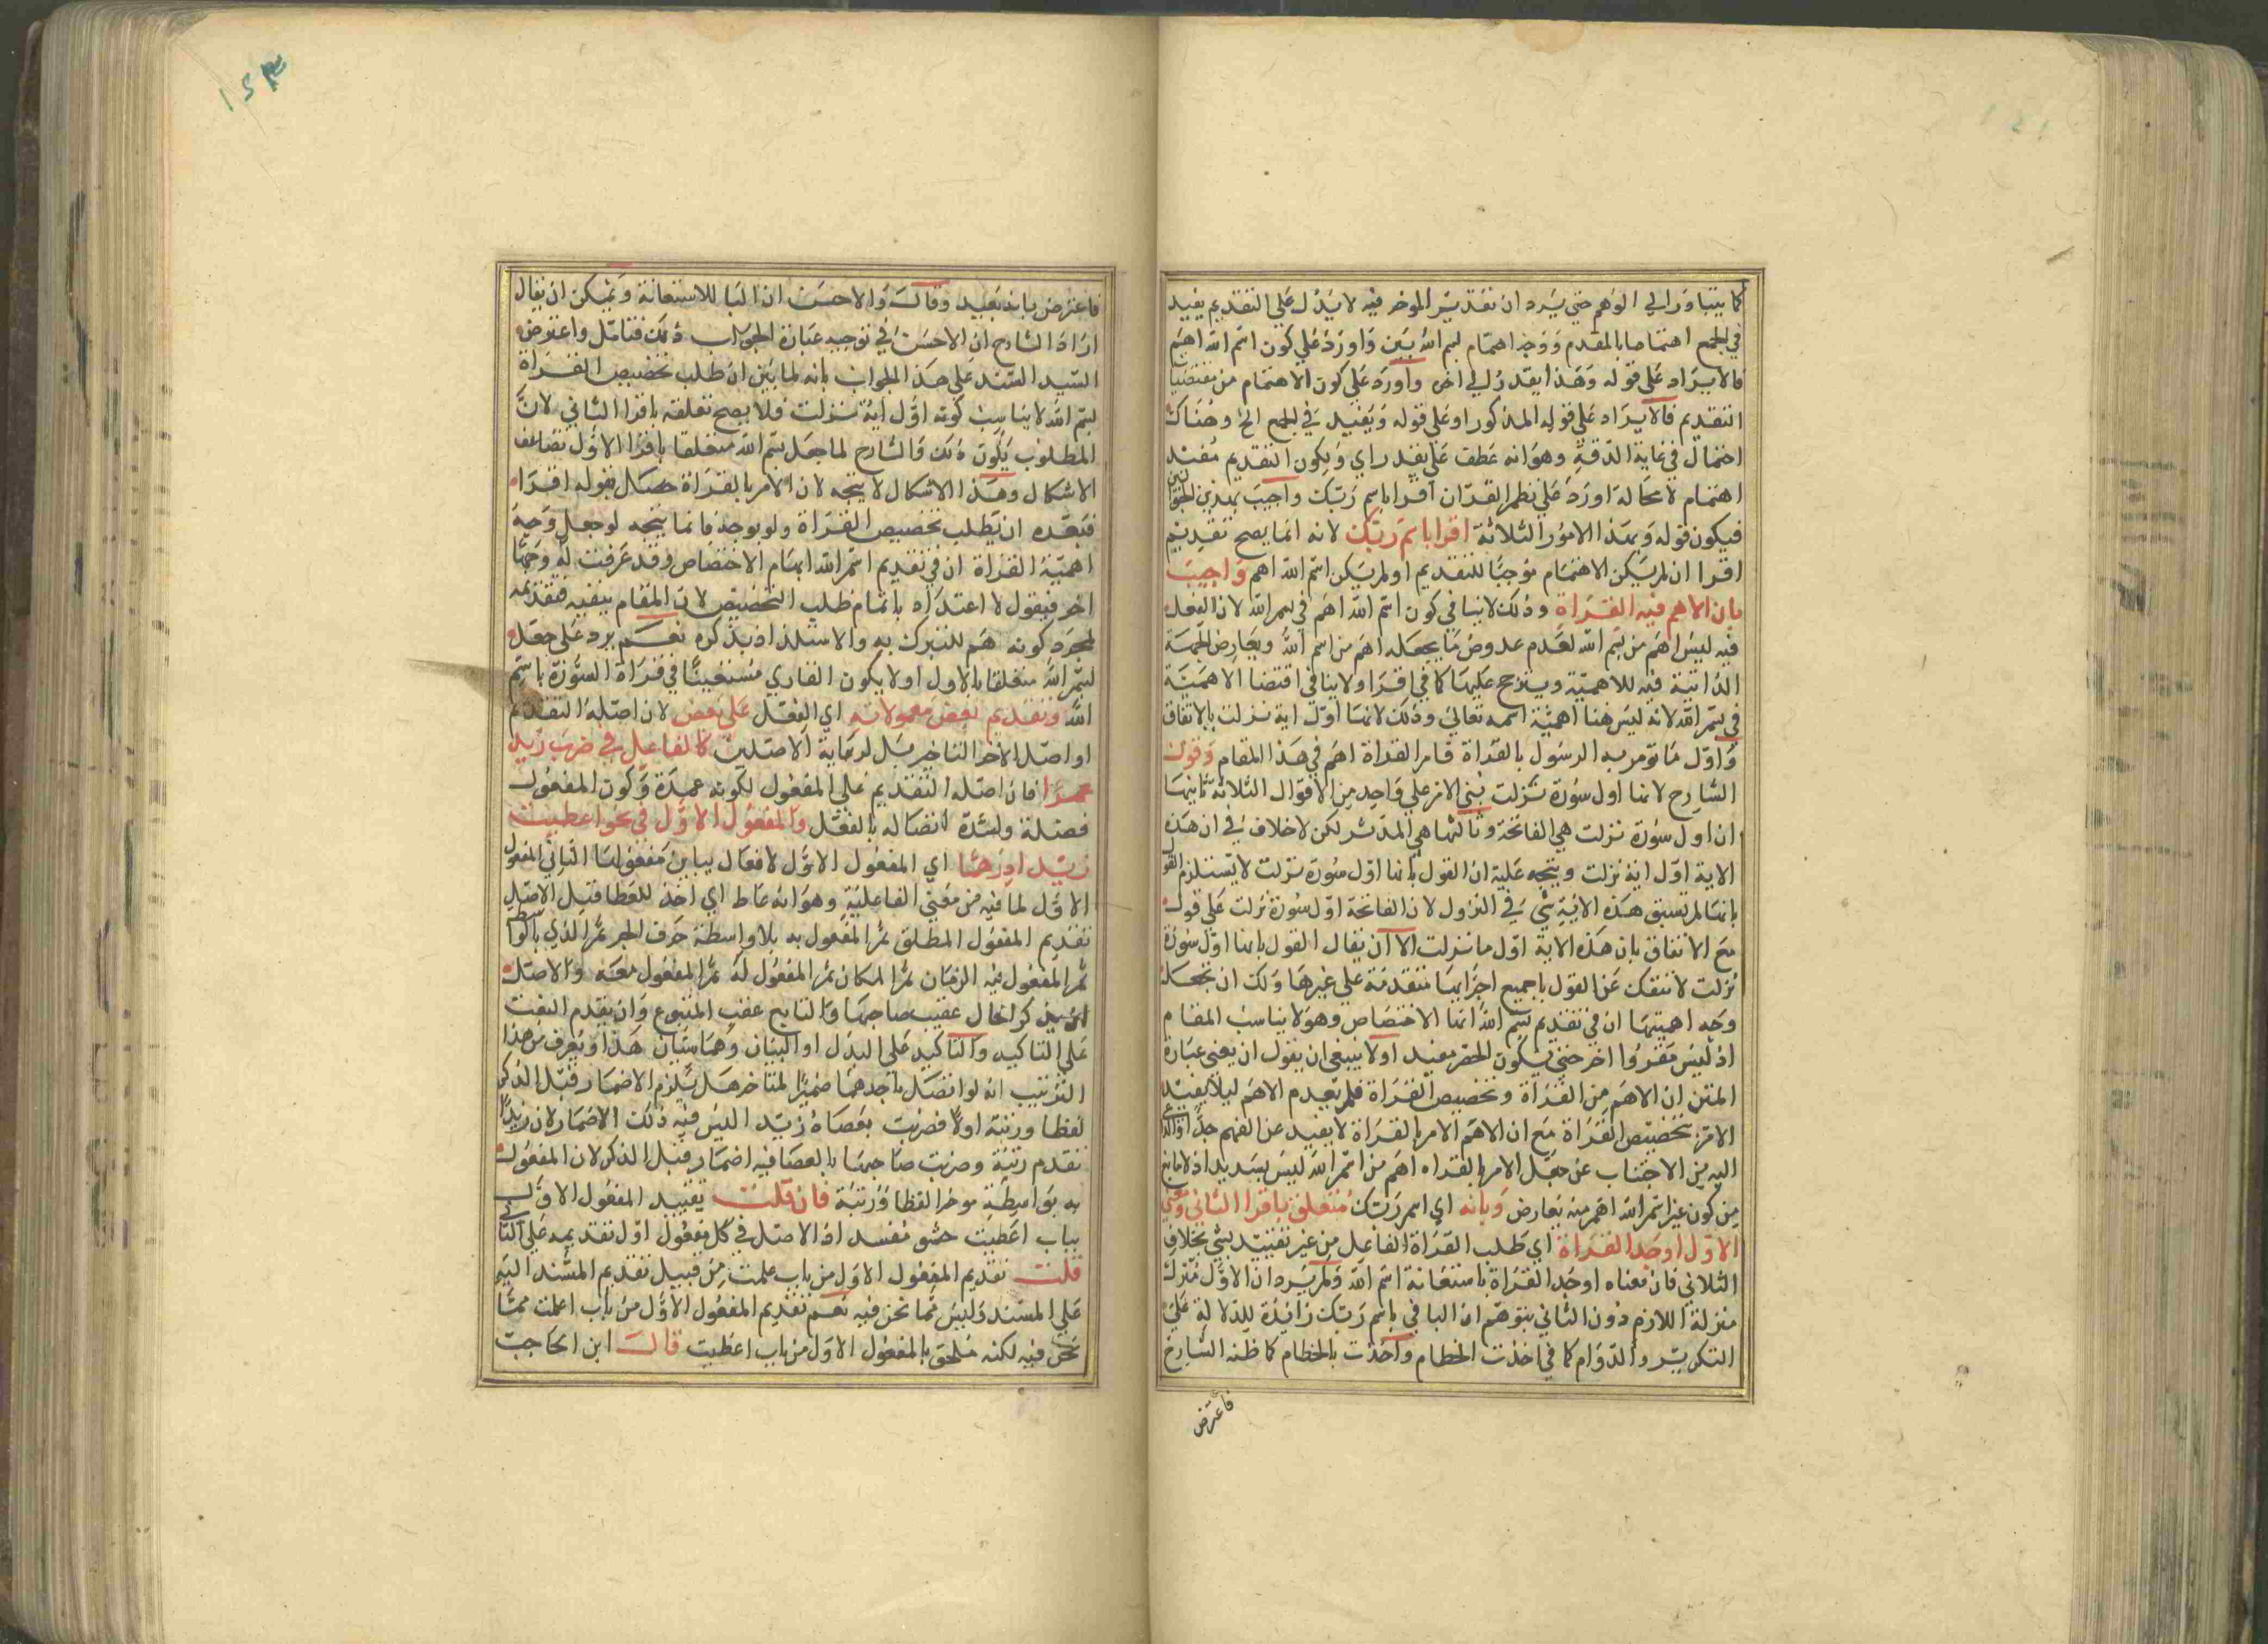 كما يتبادر الي الوهم حتي يرد ان تقدير الموخر فيه لا يدل علي التقديم يفيد
في الجمع اهتماما بالمقدم ووجه اهتمام بسم الله بين واورد علي كون اسم الله اهم
فالايراد علي قوله وهذا يقدر الي اخره واورد علي كون الاهتمام من مقتضيات
التقديم فالايراد علي قوله المذكور او علي قوله ويفيد في الجمع الخ وهناك
احتمال في غاية الدقة وهو انه عطف علي يقدر اي ولكون التقديم مفيد
اهتمام لا محالة اورد علي نظم القران اقرا باسم ربك واجيب بهذين الجوابين
فيكون قوله وبهذا الامور الثلاثة اقرا باسم ربك لانه انما يصح تقديم
اقرا ان لم يكن الاهتمام موجبا للتقديم او لم يكن اسم الله اهم واجيب
بان الاهم فيه القراة وذلك لا ينافي كون اسم الله اهم في بسم الله لان الفعل
فيه ليس اهم من بسم الله لعدم عروض ما يجعله اهم من اسم الله ويعارض الجهة
الذاتية فيه للاهمية ويترجح عليها كما في اقرا ولا ينافي اقتضا الاهمية
في بسم الله لانه ليس هنا اهمية اسمه تعالي وذلك لانها اول اية نزلت بالاتفاق
واول ما تومر به الرسول بالقراة فامر القراة اهم في هذا المقام وقول
الشارح لانها اول سورة نزلت بني الامر علي واحد من الاقوال الثلاثة ثانيها
ان اول سورة نزلت هي الفاتحة وثالثها هي المدثر لكن لا خلاف في ان هذه
الاية اول اية نزلت ويتجه عليه ان القول بانها اول سورة نزلت لا يستلزم القول
بانها لم تسبق هذه الاية شي في النزول لان الفاتحة اول سورة نزلت علي قول
مع الاتفاق بان هذه الاية اول ما نزلت الا ان يقال القول بانها اول سورة
نزلت لا تنفك عن القول بجميع اجزايها متقدمة علي غيرها ولك ان تجعل
وجه اهميتها ان في تقديم بسم الله انما الاختصاص وهو لا يناسب المقام
اذ ليس مقروا اخر حتي يكون الحصر مفيد او لا ينبغي ان يقول ان يعني عبارة
المتن ان الاهم من القراة وتخصيص القراة فلم يقدم الاهم ليلا يفيد
الامر بتخصيص القراة مع ان الاهم الامر بالقراة لا بعيد عن الفهم جدا والداعي
اليه من الاجتناب عن جعل الامر بالقراه اهم من اسم الله ليس بسديد اذ لا مانع
من كون غير اسم الله اهم منه بعارض وبانه اي اسم ربك متعلق باقرا الثاني ومعني
الاول اوجد القراة اي طلب القراة الفاعل من غير تقييد بشي بخلاف
الثلاني فان معناه اوجد القراة باستعانة اسم الله ولم يرد ان الاول منزل
منزلة اللازم دون الثاني بتوهم ان البا في باسم ربك زائدة للدلالة علي
التكرير والدوام كما في اخذت الخطام واخذت بالخطام كما ظنه الشارح
فاعترض
١٥٣
فاعترض بانه بعيد وقال والاحسن ان البا للاستعانة ويمكن ان يقال
اراد الشارح ان الاحسن في توجيه عبارة الجواب ذلك فتامل واعترض
السيد السند علي هذا الجواب بانه لما بين ان طلب تخصيص القراة
ببسم الله لا يناسب كونه اول اية نزلت فلا يصح تعلقه باقرا الثاني لان
المطلوب يكون ذلك والشارح لما جعل بسم الله متعلقا باقرا الاول تضاعف
الاشكال وهذا الاشكال لا يتجه لان الامر بالقراة حصل بقوله اقرا
فبعده ان يطلب تخصيص القراة ولو يوجد فانما يتجه لو جعل وجه
اهمية القراة ان في تقديم اسم الله ايهام الاختصاص وقد عرفت له وجها
اخر فيقول لا اعتداد بايهام طلب التخصيص لان المقام ينفيه فتقديمه
لمجرد كونه اهم للتبرك به والاستلذاذ بذكره نعم يرد علي جعل
بسم الله متعلقا بالاول او لا يكون القاري مستعينا في قراة السورة باسم
الله وتقديم بعض معمولاته اي الفعل علي بعض لان اصله التقديم
او اصل الاخر التاخير بل لرعاية الاصلين كالفاعل في ضرب زيد
عمرا فان اصله التقديم علي المفعول لكونه عمدة وكون المفعول
فضلة ولشدة اتصاله بالفعل والمفعول الاول في نحو اعطيت
زيدا درهما اي المفعول الاول لافعال يباين مفعولها الثاني المفعول
الاول لما فيه من معني الفاعلية وهو انه عاط اي اخذ للعطا قيل الاصل
تقديم المفعول المطلق ثم المفعول به بلا واسطة حرف الجر ثم الذي بالواسطة
ثم المفعول فيه الزمان ثم المكان ثم المفعول له ثم المفعول معه والاصل
ان يذكر الحال عقيب صاحبها والتابع عقب المتبوع وان يقدم النعت
علي التاكيد والتاكيد علي البدل او البيان وهما سيان هذا ويعرف من هذا
الترتيب انه لو اتصل باحدهما ضمير المتاخر هل يلزم الاضمار قبل الذكر
لفظا ورتبة اولا فضربت بعصاه زيد اليس فيه ذلك الاضمار لان زيدا
تقدم رتبة وضربت صاحبها بالعصا فيه اضمار قبل الذكر لان المفعول
به بواسطة موخر لفظا ورتبة فان قلت يقيد المفعول الاول
بباب اعطيت حشو مفسد اذ الاصل في كل مفعول اول تقديمه علي الثاني
قلت تقديم المفعول الاول من باب علمت من قبيل تقديم المسند اليه
علي المسند وليس مما نحن فيه نعم تقديم المفعول الاول من باب اعلمت مما
نحن فيه لكنه ملحق بالمفعول الاول من باب اعطيت قال ابن الحاجب